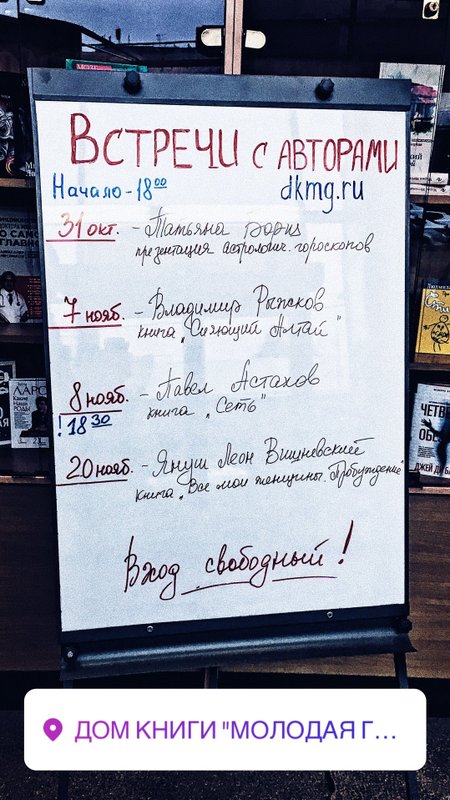 ВСТРЕЧИ С АВТОРАМИ
Начало - 18⁰⁰ dkmg.ru
31 окт. - Татьяна Борщ
презентация астрологич. гороскопов
7 нояб. - Владимир Рыжков
книга „Сияющий Алтай"
8 нояб. - Павел Астахов
! 18³⁰ книга „Сеть"
20 нояб. - Януш Леон Вишневский
книга „Все мои женщины. Пробуждение"
Вход свободный!
ДОМ КНИГИ "МОЛОДАЯ Г...